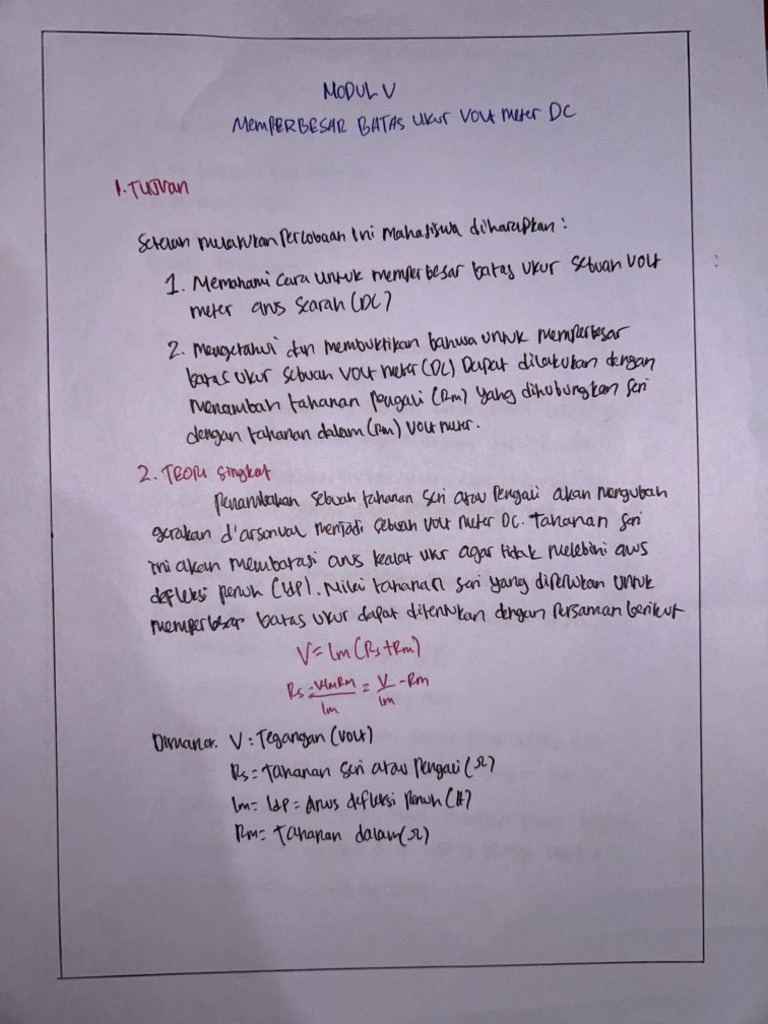 MODUL V
MEMPERBESAR BATAS UKUR VOLT METER DC
1. TUJUAN
Setelah melakukan percobaan ini mahasiswa diharapkan :
1. Memahami cara untuk memperbesar batas ukur sebuah volt
meter arus searah (DC)
2. Mengetahui dan membuktikan bahwa untuk memperbesar
batas ukur sebuah volt meter (DC) Dapat dilakukan dengan
menambah tahanan pengali (Rm) yang dihubungkan seri
dengan tahanan dalam (Rm) volt meter.
2. TEORI singkat
Penambahan sebuah tahanan seri atau pengali akan mengubah
gerakan d'arsonval menjadi sebuah volt meter DC. tahanan seri
ini akan membatasi arus kealat ukr agar tidak melebihi arus
defleksi penuh (Idp). Nilai tahanan seri yang diperlukan untuk
memperbesar batas ukur dapat ditentukan dengan Persaman berikut
V = Im (Rs + Rm)
Rs = V-ImRm/Im = V/Im - Rm
Dimana. V : Tegangan (volt)
Rs = tahanan seri atau Pengali (Ω)
Im = Idp = Arus defleksi penuh (A)
Rm = tahanan dalam (Ω)